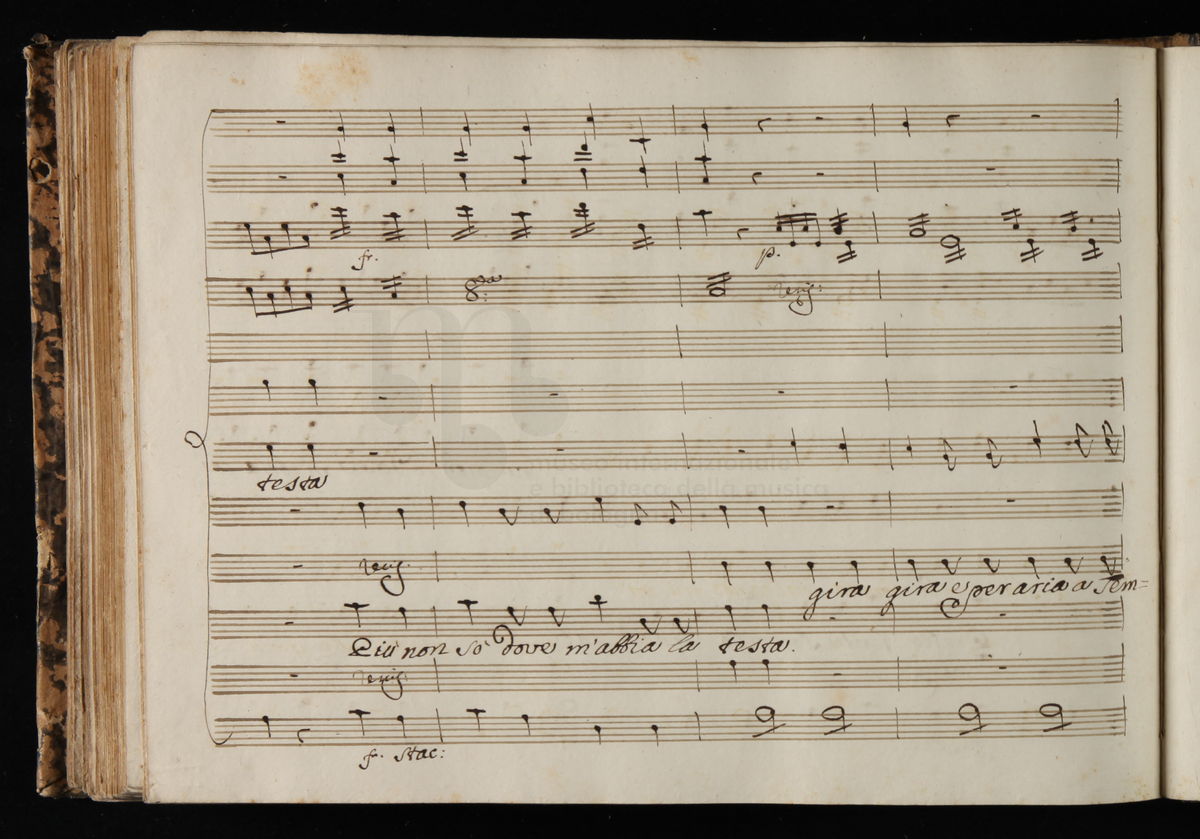 fr.
p.
8va
testa
gira gira e per aria a tem=
Più non sò dove m'abbia la testa.
fr. stac:
museo internazionale
e biblioteca della musica